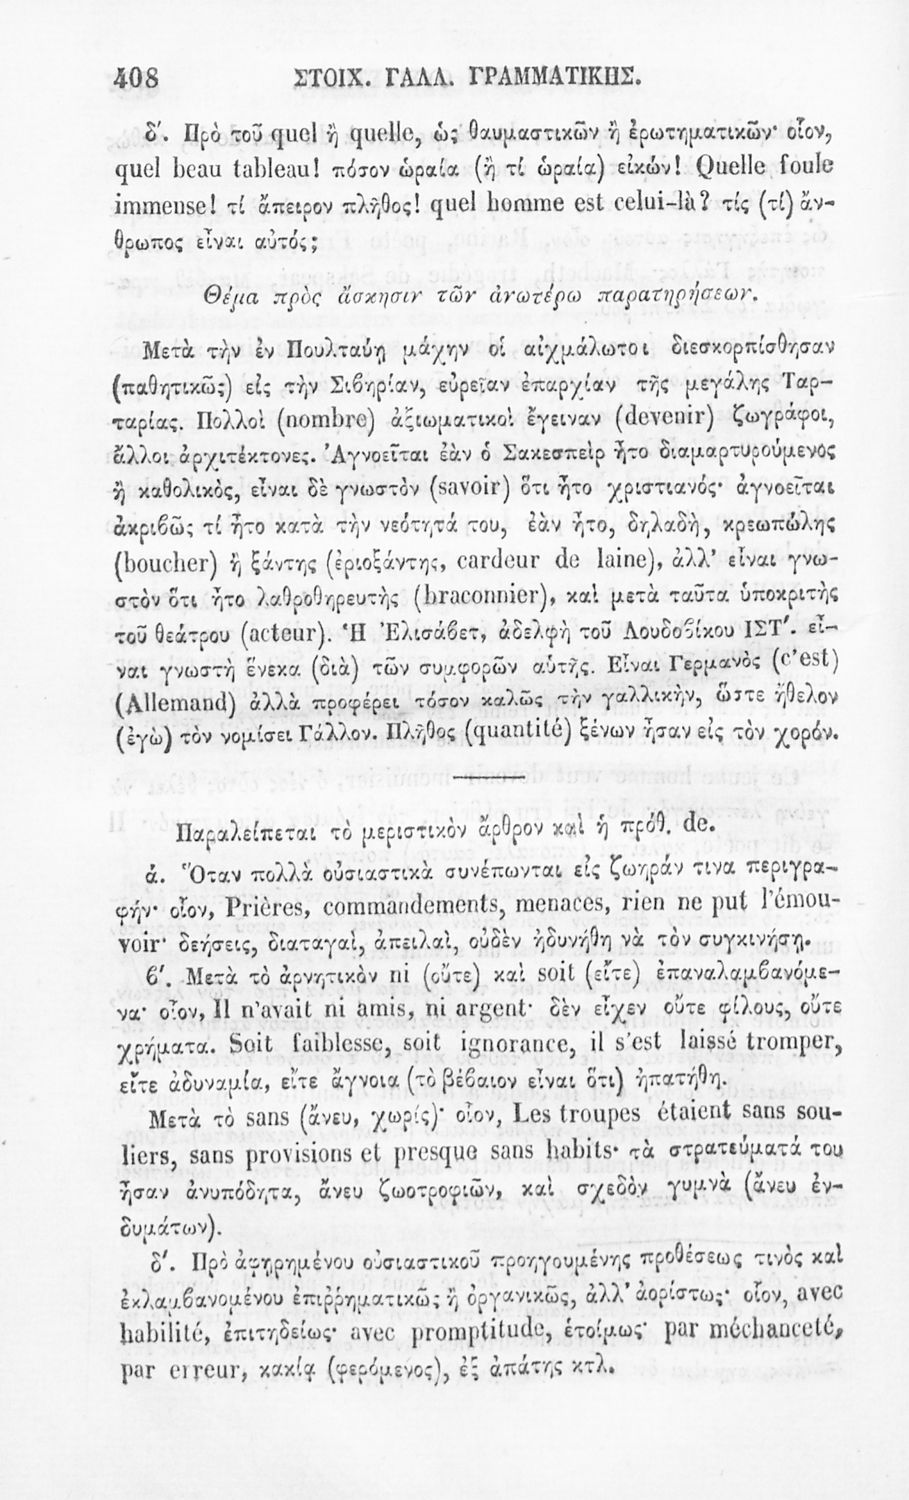 408 ΣΤΟΙΧ. ΓΑΛΛ. ΓΡΑΜΜΑΤΙΚΗΣ.
δ'. Πρὸ τοῦ quel ἢ quelle, ὡς θαυμαστικῶν ἢ ἐρωτηματικῶν· οἷον,
quel beau tableau! πόσον ὡραία (ἢ τί ὡραία) εἰκών! Quelle foule
immense! τί ἄπειρον πλῆθος! quel homme est celui-là? τίς (τί) ἄν-
θρωπος εἶναι αὐτός;
Θέμα πρὸς ἄσκησιν τῶν ἀνωτέρω παρατηρήσεων.
Μετὰ τὴν ἐν Πουλταύῃ μάχην οἱ αἰχμάλωτοι διεσκορπίσθησαν
(παθητικῶς) εἰς τὴν Σιβηρίαν, εὐρεῖαν ἐπαρχίαν τῆς μεγάλης Ταρ-
ταρίας. Πολλοὶ (nombre) ἀξιωματικοὶ ἔγειναν (devenir) ζωγράφοι,
ἄλλοι ἀρχιτέκτονες. Ἀγνοεῖται ἐὰν ὁ Σακεσπεὶρ ἦτο διαμαρτυρούμενος
ἢ καθολικός, εἶναι δὲ γνωστὸν (savoir) ὅτι ἦτο χριστιανός· ἀγνοεῖται
ἀκριβῶς τί ἦτο κατὰ τὴν νεότητά του, ἐὰν ἦτο, δηλαδὴ, κρεωπώλης
(boucher) ἢ ξάντης (ἐριοξάντης, cardeur de laine), ἀλλ' εἶναι γνω-
στὸν ὅτι ἦτο λαθροθηρευτὴς (braconnier), καὶ μετὰ ταῦτα ὑποκριτὴς
τοῦ θεάτρου (acteur). Ἡ Ἐλισάβετ, ἀδελφὴ τοῦ Λουδοβίκου ΙΣΤ'. εἶ-
ναι γνωστὴ ἕνεκα (διὰ) τῶν συμφορῶν αὐτῆς. Εἶναι Γερμανὸς (c'est)
(Allemand) ἀλλὰ προφέρει τόσον καλῶς τὴν γαλλικὴν, ὥστε ἤθελον
(ἐγὼ) τὸν νομίσει Γάλλον. Πλῆθος (quantité) ξένων ἦσαν εἰς τὸν χορόν.
Παραλείπεται τὸ μεριστικὸν ἄρθρον καὶ ἡ πρόθ. de.
ά. Ὅταν πολλὰ οὐσιαστικὰ συνέπωνται εἰς ζωηράν τινα περιγρα-
φήν· οἷον, Prières, commandements, menaces, rien ne put l'émou-
voir· δεήσεις, διαταγαὶ, ἀπειλαὶ, οὐδὲν ἠδυνήθη νὰ τὸν συγκινήσῃ.
β'. Μετὰ τὸ ἀρνητικὸν ni (οὔτε) καὶ soit (εἴτε) ἐπαναλαμβανόμε-
να· οἷον, Il n'avait ni amis, ni argent· δὲν εἶχεν οὔτε φίλους, οὔτε
χρήματα. Soit faiblesse, soit ignorance, il s'est laissé tromper,
εἴτε ἀδυναμία, εἴτε ἄγνοια (τὸ βέβαιον εἶναι ὅτι) ἠπατήθη.
Μετὰ τὸ sans (ἄνευ, χωρίς)· οἷον, Les troupes étaient sans sou-
liers, sans provisions et presque sans habits· τὰ στρατεύματά του
ἦσαν ἀνυπόδητα, ἄνευ ζωοτροφιῶν, καὶ σχεδὸν γυμνὰ (ἄνευ ἐν-
δυμάτων).
δ'. Πρὸ ἀφῃρημένου οὐσιαστικοῦ προηγουμένης προθέσεως τινὸς καὶ
ἐκλαμβανομένου ἐπιῤῥηματικῶς ἢ ὀργανικῶς, ἀλλ' ἀορίστως· οἷον, avec
habilité, ἐπιτηδείως· avec promptitude, ἑτοίμως· par méchanceté,
par erreur, κακίᾳ (φερόμενος), ἐξ ἀπάτης κτλ.